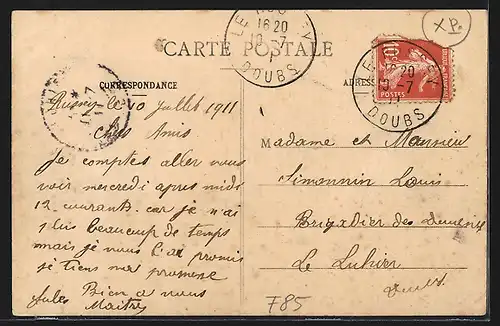 CARTE POSTALE
CORRESPONDANCE
ADRESSE
LE
16 20
10 -7
DOUBS
LE
20
-7
11
DOUBS
10
POSTES
XP.
Russey le 10 juillet 1911
Chers Amis
je comptes aller vous
voir mercredi apres midi
12 courant. car je n'ai
plus beaucoup de temps
mais je vous l'ai promis
je tiens ma promesse
Bien a vous
Jules Maitre
Madame et Monsieur
Simonnin Louis
Brigadier des douanes
Le Luhier
Doubs
F85